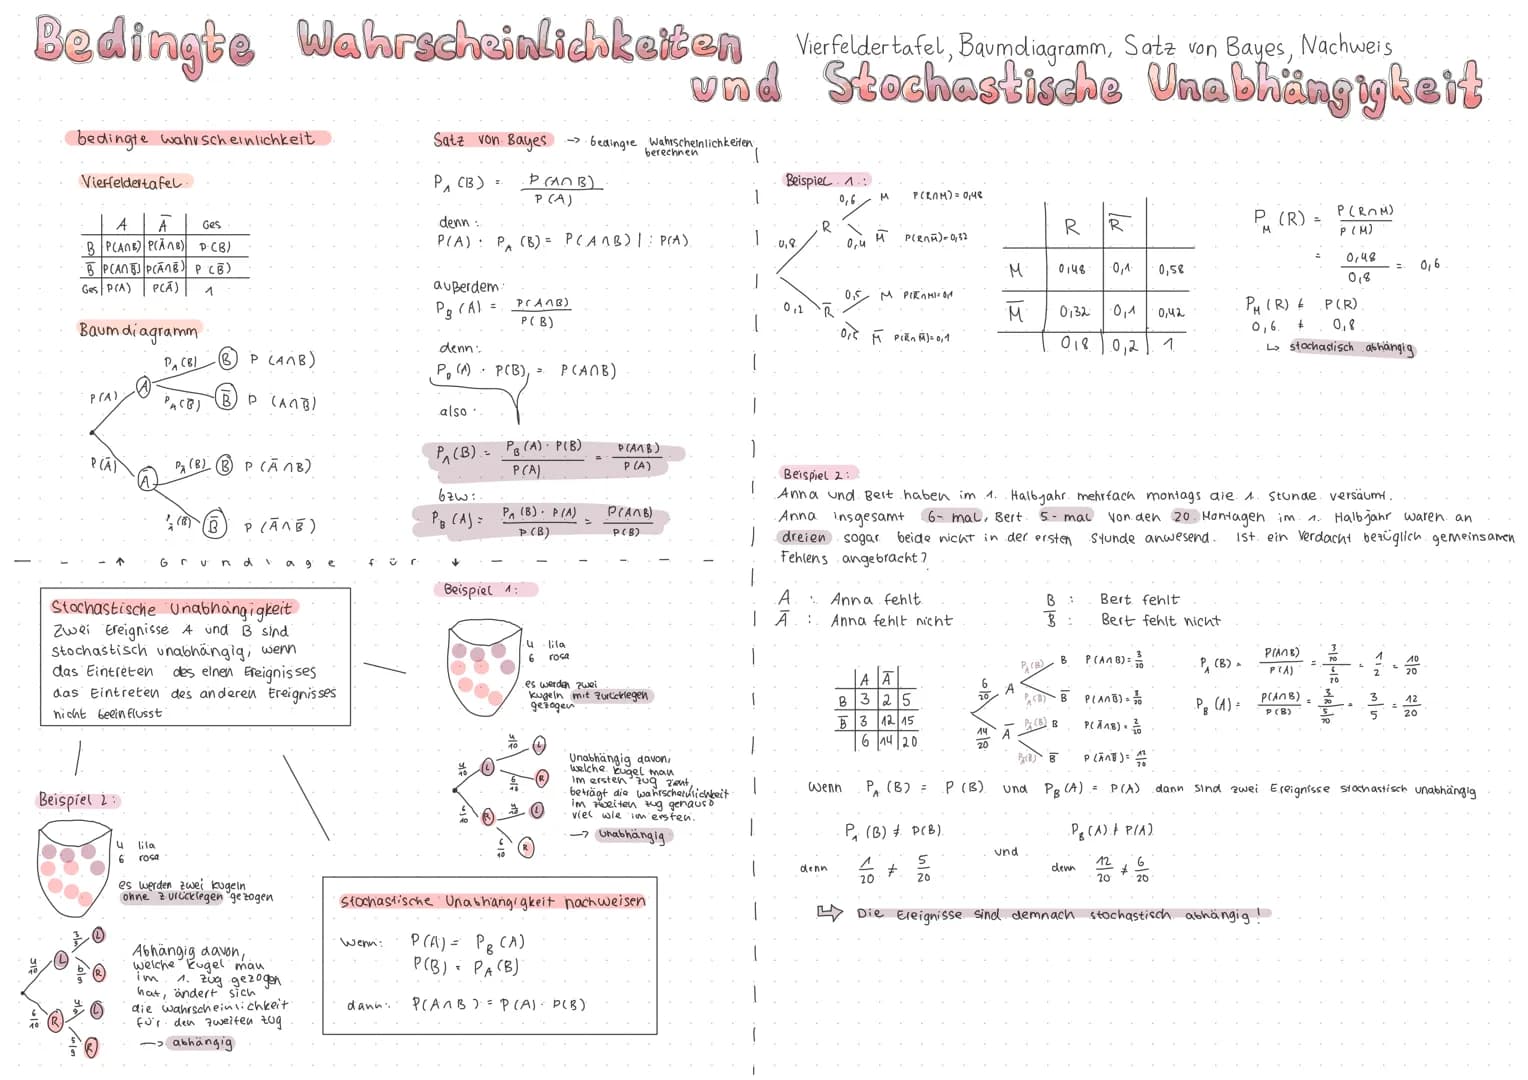 Bedingte Wahrscheinlichkeiten
Vierfeldertafel, Baumdiagramm, Satz von Bayes, Nachweis
und Stochastische Unabhängigkeit
bedingte wahrscheinlichkeit
Vierfeldertafel
A Ā Ges
B P(A∩B) P(Ā∩B) P(B)
B̄ P(A∩B̄) P(Ā∩B̄) P(B̄)
Ges P(A) P(Ā) 1
Baumdiagramm
P_A(B) B P(A∩B)
P(A) A P_A(B̄) B̄ P(A∩B̄)
P(Ā) Ā P_Ā(B) B P(Ā∩B)
B̄ P(Ā∩B̄)
Satz von Bayes → bedingte Wahrscheinlichkeiten
berechnen
P_A(B) = P(A∩B) / P(A)
denn:
P(A) · P_A(B) = P(A∩B) | : P(A)
außerdem:
P_B(A) = P(A∩B) / P(B)
denn:
P_B(A) · P(B) = P(A∩B)
also:
P_A(B) = P_B(A) · P(B) / P(A) = P(A∩B) / P(A)
bzw:
P_B(A) = P_A(B) · P(A) / P(B) = P(A∩B) / P(B)
↑ Grundlage für ↓
Stochastische Unabhängigkeit
Zwei Ereignisse A und B sind
stochastisch unabhängig, wenn
das Eintreten des einen Ereignisses
das Eintreten des anderen Ereignisses
nicht beeinflusst
Beispiel 1:
4 lila
6 rosa
es werden zwei
kugeln mit zurücklegen
gezogen
4/10 L 4/10 L
6/10 R
6/10 R 4/10 L
6/10 R
Unabhängig davon,
welche kugel man
im ersten zug zieht,
beträgt die wahrscheinlichkeit
im zweiten zug genauso
viel wie im ersten.
→ unabhängig
Beispiel 2:
4 lila
6 rosa
es werden zwei kugeln
ohne zurücklegen gezogen
4/10 L 3/9 L
6/9 R
6/10 R 4/9 L
5/9 R
Abhängig davon,
welche kugel man
im 1. zug gezogen
hat, ändert sich
die wahrscheinlichkeit
für den zweiten zug
→ abhängig
Stochastische Unabhängigkeit nachweisen
wenn: P(A) = P_B(A)
P(B) = P_A(B)
dann: P(A∩B) = P(A) · P(B)
Beispiel 1:
0,8 R 0,6 M P(R∩M)=0,48
0,4 M̄ P(R∩M̄)=0,32
0,2 R̄ 0,5 M P(R̄∩M)=0,1
0,5 M̄ P(R̄∩M̄)=0,1
R R̄
M 0,48 0,1 0,58
M̄ 0,32 0,1 0,42
0,8 0,2 1
P_M(R) = P(R∩M) / P(M)
= 0,48 / 0,8 = 0,6
P_M(R) ≠ P(R)
0,6 ≠ 0,8
↳ stochastisch abhängig
Beispiel 2:
Anna und Bert haben im 1. Halbjahr mehrfach montags die 1. Stunde versäumt.
Anna insgesamt 6-mal, Bert 5-mal von den 20 Montagen im 1. Halbjahr waren an
dreien sogar beide nicht in der ersten Stunde anwesend. Ist ein Verdacht bezüglich gemeinsamen
Fehlens angebracht?
A : Anna fehlt B : Bert fehlt
Ā : Anna fehlt nicht B̄ : Bert fehlt nicht
A Ā
B 3 2 5
B̄ 3 12 15
6 14 20
6/20 A P_A(B) B P(A∩B)=3/20
P_A(B̄) B̄ P(A∩B̄)=3/20
14/20 Ā P_Ā(B) B P(Ā∩B)=2/20
B̄ P(Ā∩B̄)=12/20
P_A(B) = P(A∩B) / P(A) = 3/20 / 6/20 = 1/2 = 10/20
P_B(A) = P(A∩B) / P(B) = 3/20 / 5/20 = 3/5 = 12/20
wenn P_A(B) = P(B) und P_B(A) = P(A) dann sind zwei Ereignisse stochastisch unabhängig
P_A(B) ≠ P(B) und P_B(A) ≠ P(A)
denn 1/20 ≠ 5/20 denn 12/20 ≠ 6/20
⇨ Die Ereignisse sind demnach stochastisch abhängig!